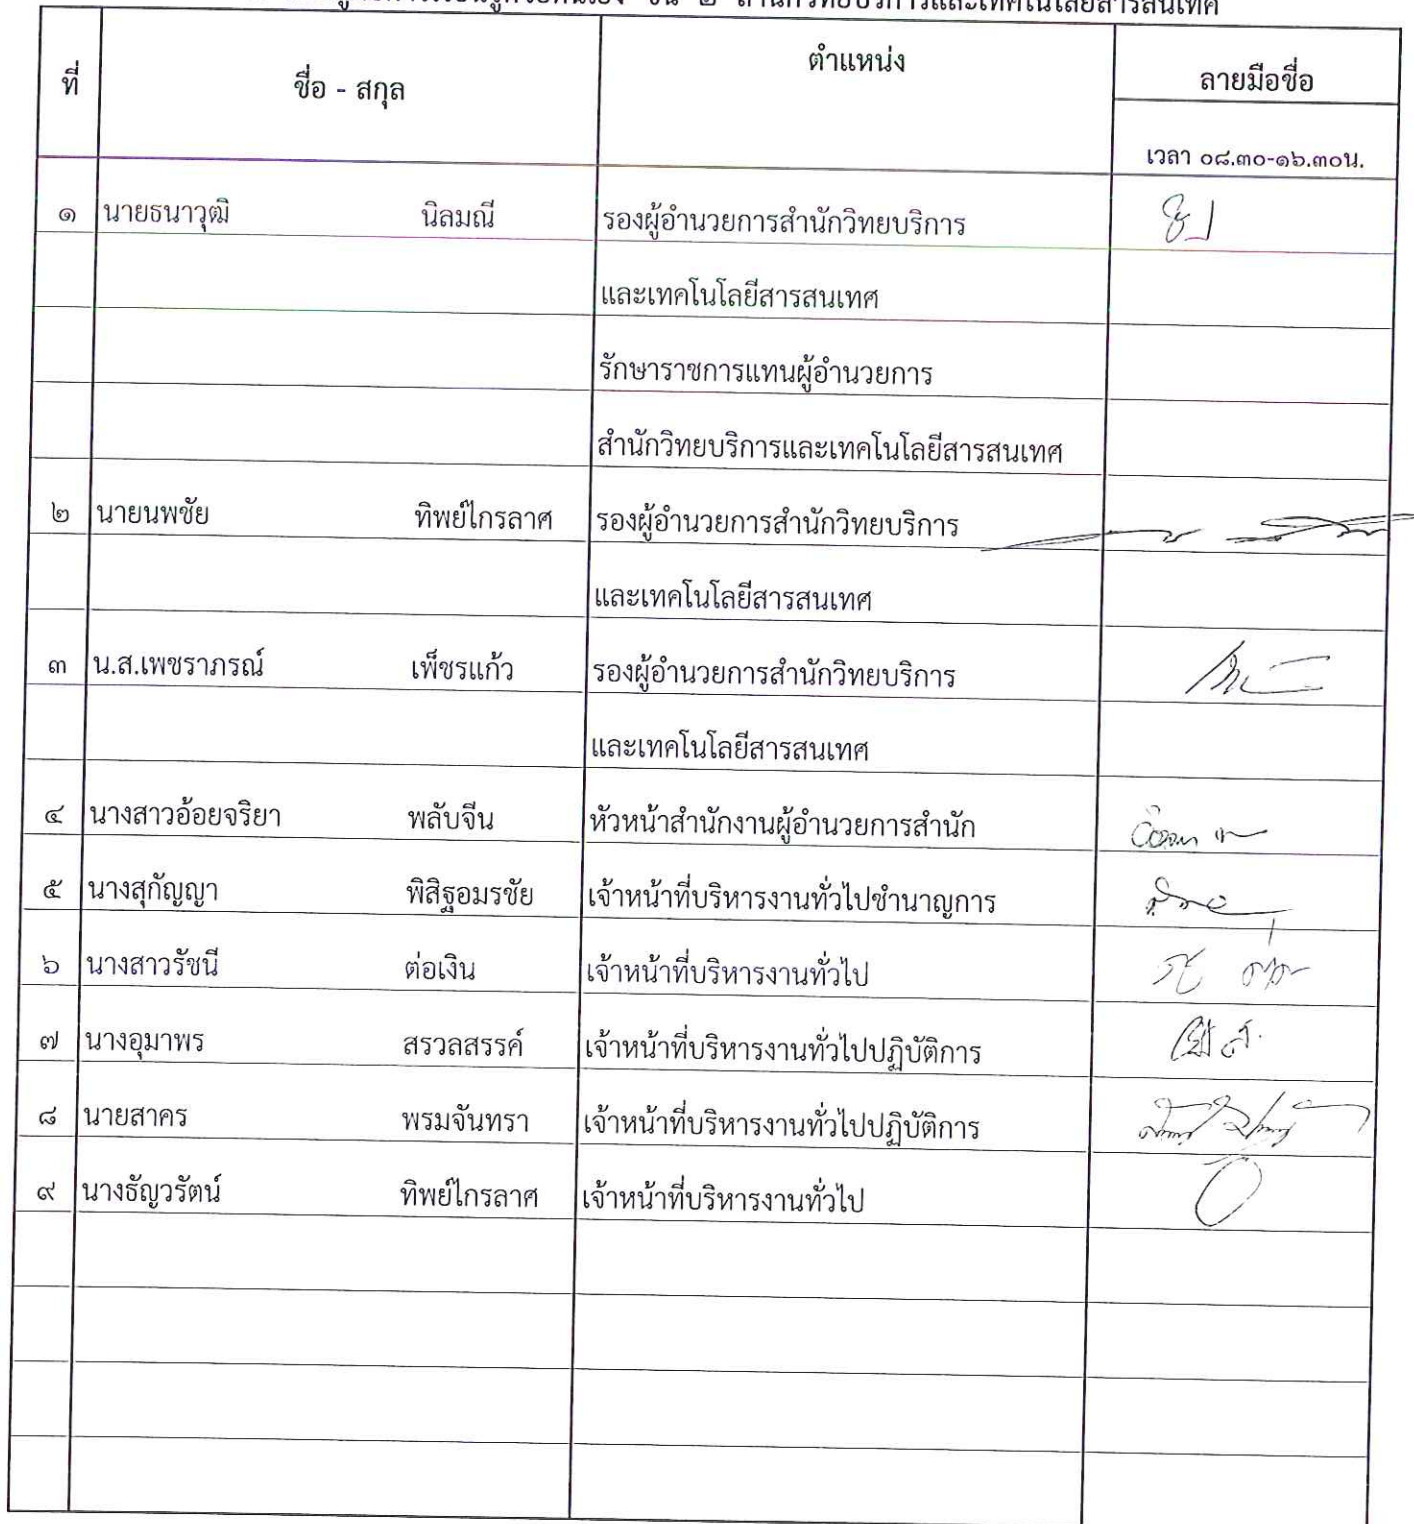 ชั้น ๒ สำนักวิทยบริการและเทคโนโลยีสารสนเทศ
ที่ ชื่อ - สกุล ตำแหน่ง ลายมือชื่อ
เวลา ๐๘.๓๐-๑๖.๓๐น.
๑ นายธนาวุฒิ นิลมณี รองผู้อำนวยการสำนักวิทยบริการ
และเทคโนโลยีสารสนเทศ
รักษาราชการแทนผู้อำนวยการ
สำนักวิทยบริการและเทคโนโลยีสารสนเทศ
๒ นายนพชัย ทิพย์ไกรลาศ รองผู้อำนวยการสำนักวิทยบริการ
และเทคโนโลยีสารสนเทศ
๓ น.ส.เพชราภรณ์ เพ็ชรแก้ว รองผู้อำนวยการสำนักวิทยบริการ
และเทคโนโลยีสารสนเทศ
๔ นางสาวอ้อยจริยา พลับจีน หัวหน้าสำนักงานผู้อำนวยการสำนัก
๕ นางสุกัญญา พิสิฐอมรชัย เจ้าหน้าที่บริหารงานทั่วไปชำนาญการ
๖ นางสาวรัชนี ต่อเงิน เจ้าหน้าที่บริหารงานทั่วไป
๗ นางอุมาพร สรวลสรรค์ เจ้าหน้าที่บริหารงานทั่วไปปฏิบัติการ
๘ นายสาคร พรมจันทรา เจ้าหน้าที่บริหารงานทั่วไปปฏิบัติการ
๙ นางธัญวรัตน์ ทิพย์ไกรลาศ เจ้าหน้าที่บริหารงานทั่วไป